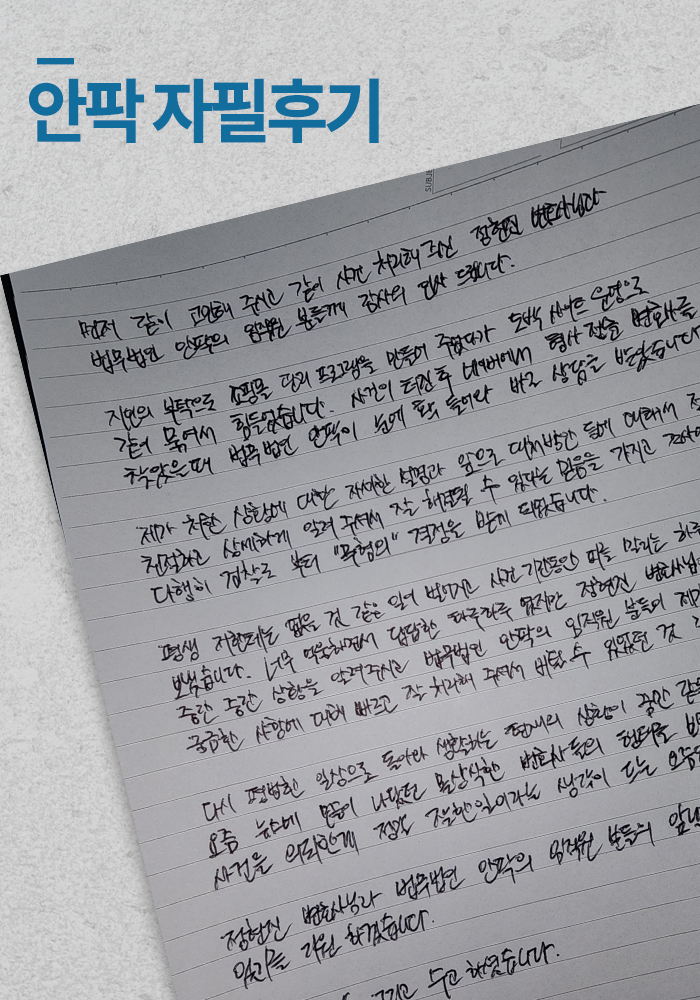 안팍 자필후기
SUBJE
먼저 같이 고민해 주시고 같이 사건 처리해 주신 정현진 변호사님과
법무법인 안팍의 임직원 분들께 감사의 인사 드립니다.
지인의 부탁으로 쇼핑몰 관리 프로그램을 만들어 주었다가 도박 사이트 운영으로
같이 묶여서 힘들었습니다. 사건이 터진 후 네이버에서 형사 전문 변호사를
찾았을때 법무법인 안팍이 눈에 확 들어와 바로 상담을 받았습니다
제가 처한 상황에 대한 자세한 설명과 앞으로 대처방안 등에 대해서
친절하고 상세하게 알려 주셔서 잘 해결될 수 있다는 믿음을 가지고
다행히 경찰로 부터 "무혐의" 결정을 받게 되었습니다.
평생 저한테는 없을 것 같은 일이 벌어지고 사건 기간동안 피를 말리는 하루
보냈습니다. 너무 억울하면서 답답한 하루하루 였지만 정현진 변호사님
중간 중간 상황을 알려주시고 법무법인 안팍의 임직원 분들이 제가
궁금한 사항에 대해 빠르고 잘 처리해 주셔서 버틸 수 있었던 것
다시 평범한 일상으로 돌아와 생활하는 현재의 상황이 꿈만 같
요즘 뉴스에 많이 나왔던 몰상식한 변호사들의 형태를
사건을 의뢰한게 정말 잘한일이라는 생각이 드는
정현진 변호사님과 법무법인 안팍의 임직원 분들의 앞
일처를 기원 하겠습니다.
그리고 하였습니다.